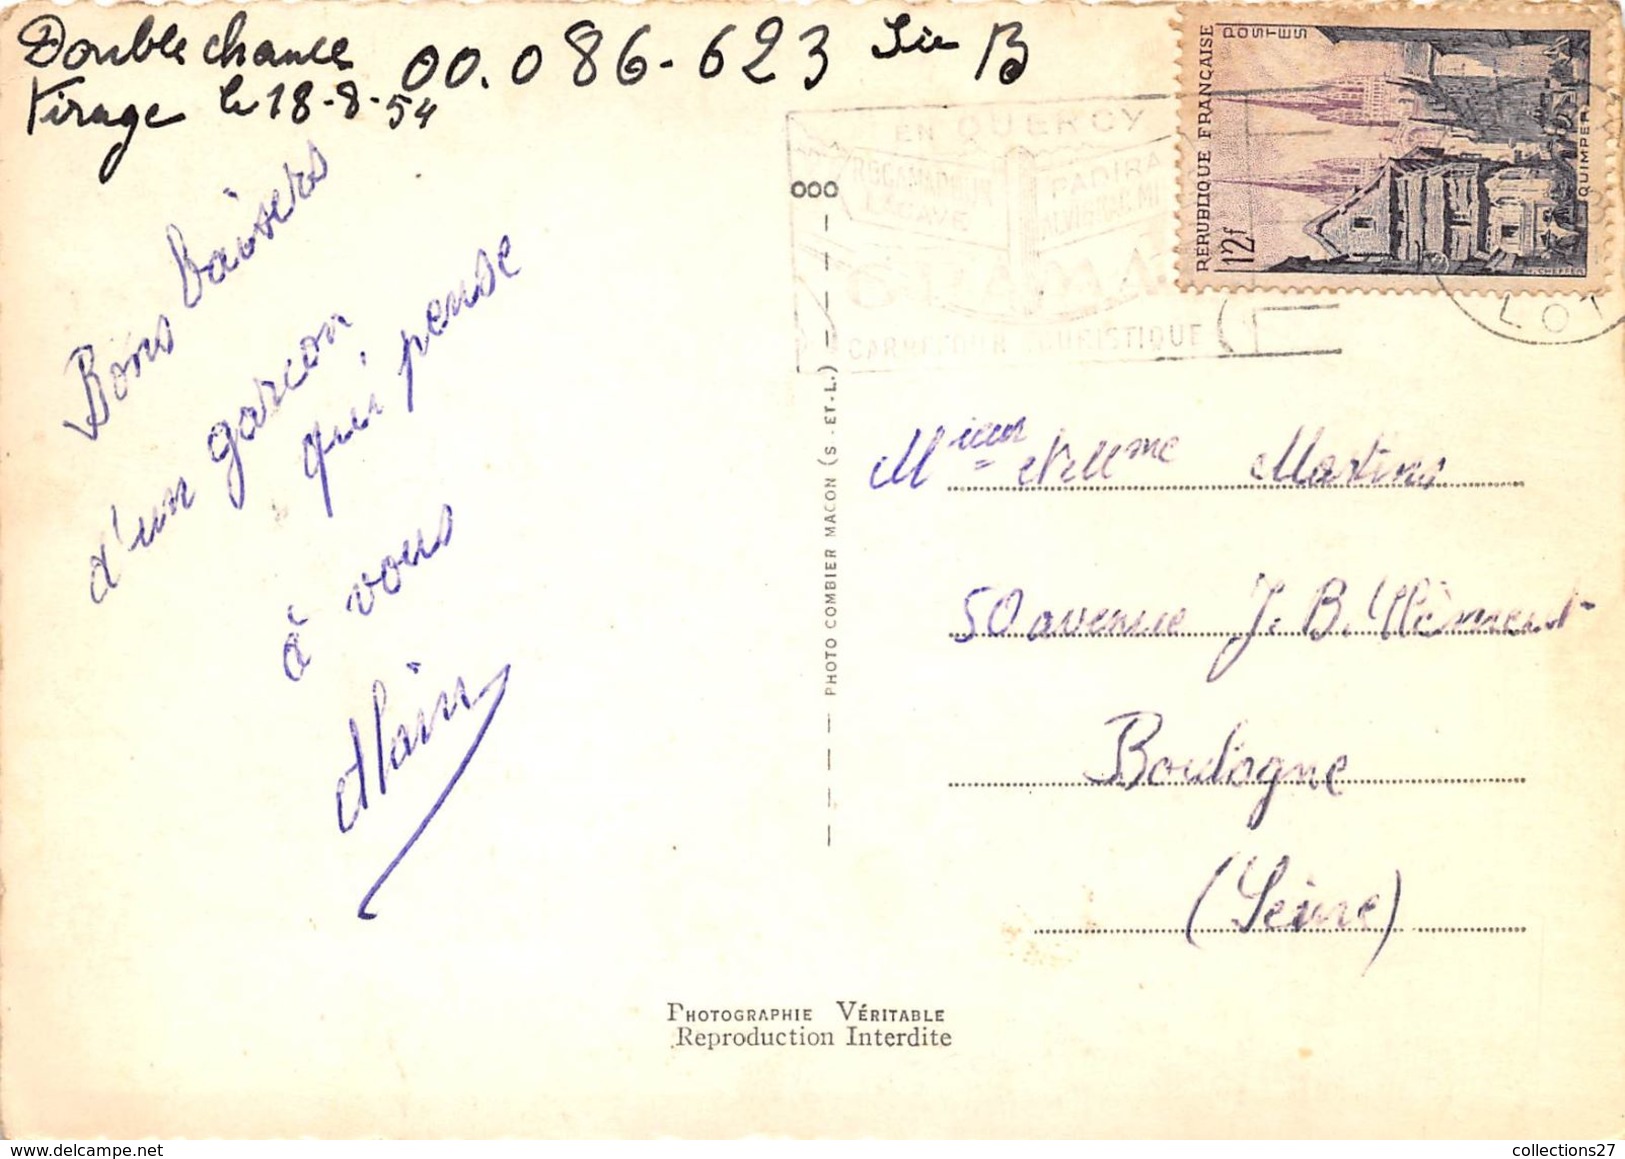 Double chance
Tirage le 18-8-54
00.086-623 Sie B
Bons baisers
d'un garçon
qui pense
à vous
Alain
EN QUERCY
ROCAMADOUR
LACAVE
PADIRAC
CARREFOUR TOURISTIQUE
LOT
RÉPUBLIQUE FRANÇAISE
POSTES
12f
QUIMPER
000
PHOTO COMBIER MACON (S.-ET-L.)
Mieur et Mme Martins
50 avenue J. B. Clément
Boulogne
(Seine)
PHOTOGRAPHIE VÉRITABLE
Reproduction Interdite
collections27